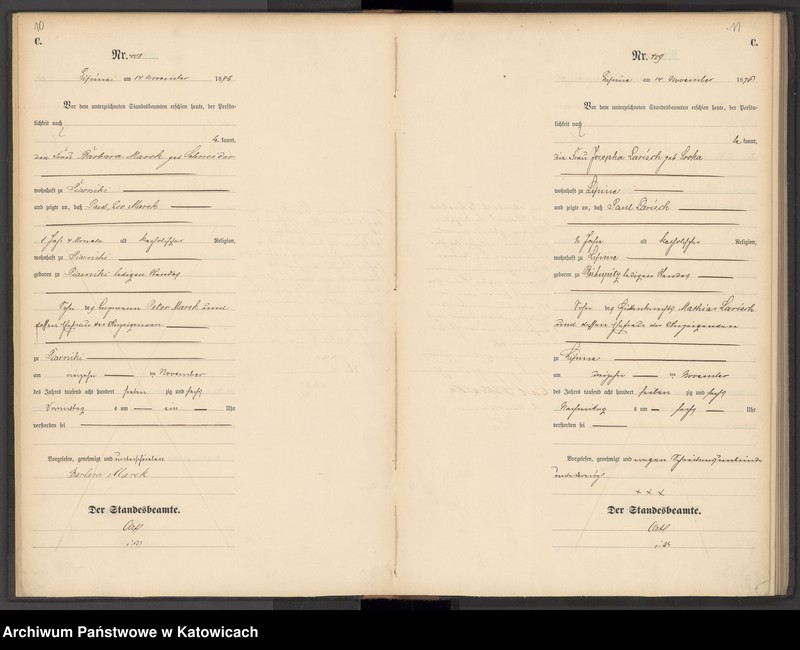 10
C.
Nr. 408
Lipine am 14 November 1876
Vor dem unterzeichneten Standesbeamten erschien heute, der Persön-
lichkeit nach
be kannt,
die Frau Barbara Marek geb Schneider
wohnhaft zu Piasniki
und zeigte an, daß Paul, Leo Marek
1 Jahr 4 Monate alt katholischer Religion,
wohnhaft zu Piasniki
geboren zu Piasniki ledigen Standes
Sohn des Bergmann Peter Marek und
dessen Ehefrau der Anzeigenden
zu Piasniki
am vierzehn ten November
des Jahres tausend acht hundert sieben zig und sechs
Vormittag s um ein Uhr
verstorben sei
Vorgelesen, genehmigt und unterschrieben
Barbara Marek
Der Standesbeamte.
11
C.
Nr. 409
Lipine am 14 November 1876
Vor dem unterzeichneten Standesbeamten erschien heute, der Persön-
lichkeit nach
be kannt,
die Frau Josepha Larisch geb Sroka
wohnhaft zu Lipine
und zeigte an, daß Paul Larisch
Jahre alt katholischer Religion,
wohnhaft zu Lipine
geboren zu ledigen Standes
Sohn des Mathias Larisch
und dessen Ehefrau der Anzeigenden
zu Lipine
am dreizehn ten November
des Jahres tausend acht hundert sieben zig und sechs
Nachmittag s um sechs Uhr
verstorben sei
Vorgelesen, genehmigt und wegen Schreibensunkunde
unterkreuzt
+ + +
Der Standesbeamte.
Archiwum Państwowe w Katowicach